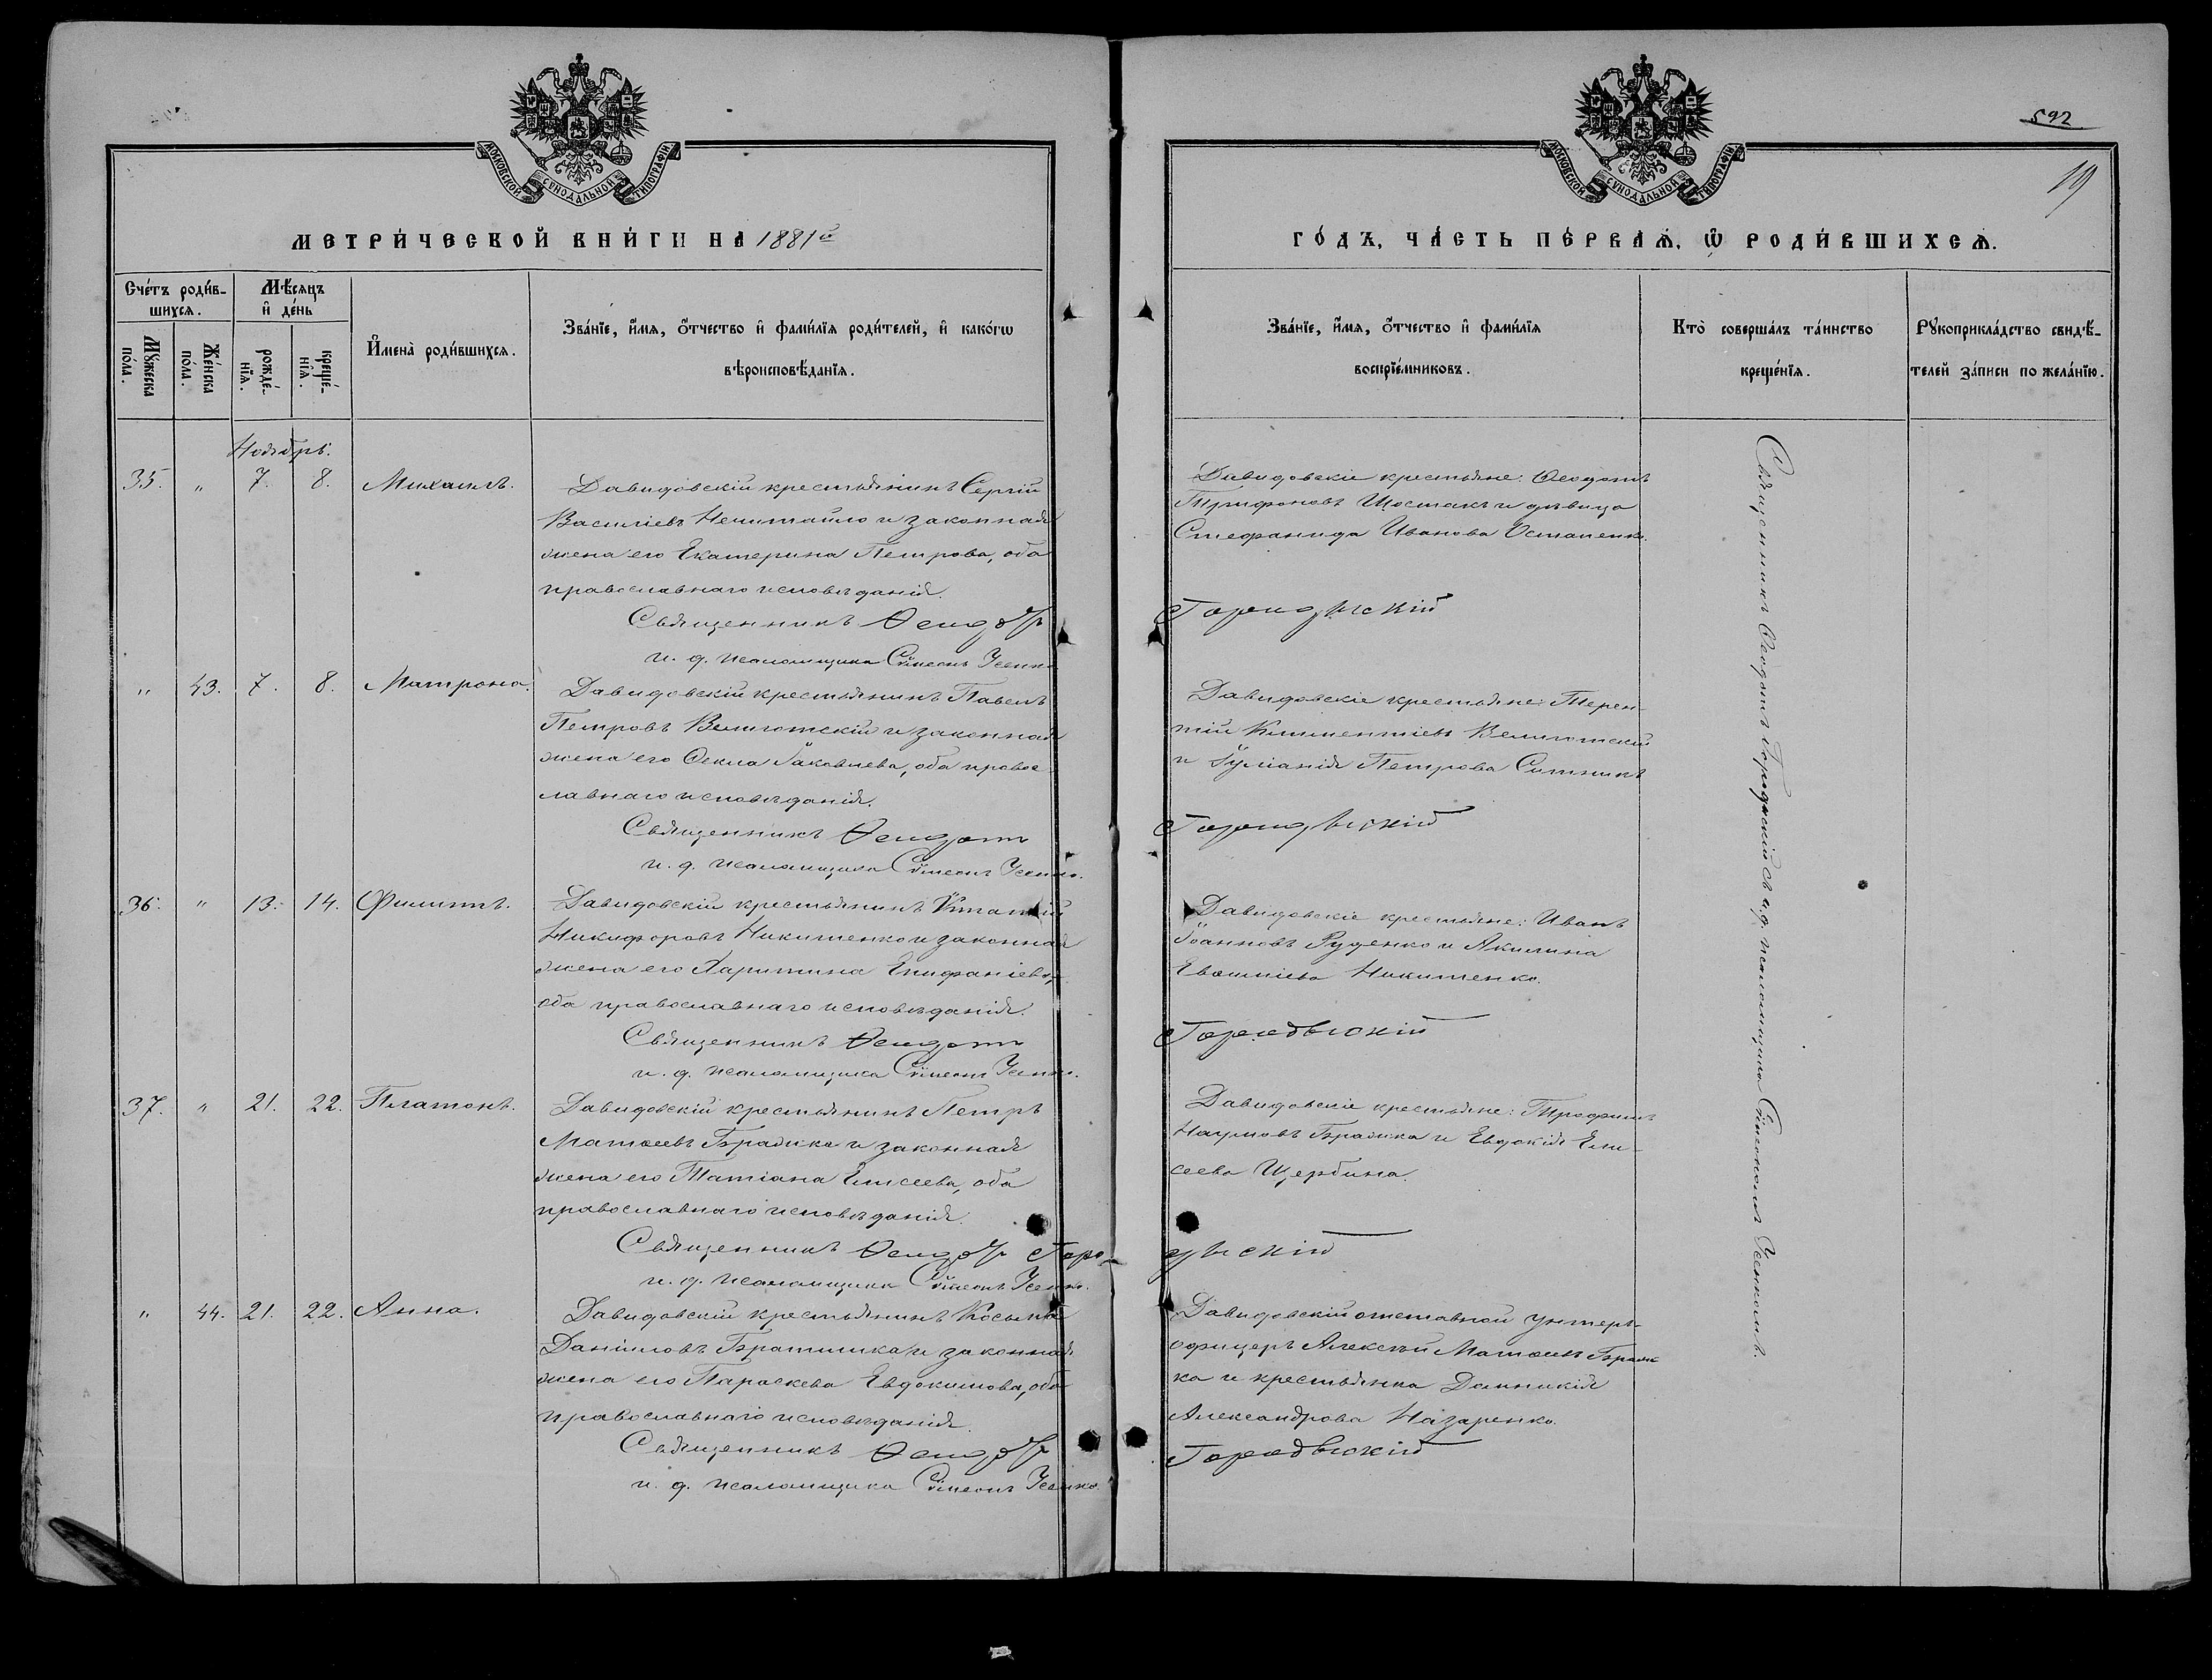 МОСКОВСКОЙ СѴНОДАЛЬНОЙ ТИПОГРАФІИ
МЕТРИ́ЧЕСКОЙ КНИ́ГИ НА 1881й
Сче́тъ роди́в-
шихсѧ.
Мѣ́сѧцъ
и҆ де́нь
Мꙋ́жеска
по́ла.
Же́нска
по́ла.
рожде́-
нїѧ.
креще́-
нїѧ.
И҆мена̀ роди́вшихсѧ.
Зва́нїе, и҆́мѧ, ѻ҆́тчество и҆ фами́лїѧ роди́телей, и҆ како́гѡ
вѣроисповѣ́данїѧ.
Ноябрь.
35. " 7. 8. Михаилъ.
Давидовскій крестьянинъ Сергій
Василіевъ Нечитайло и законная
жена его Екатерина Петрова, оба
православнаго исповѣданія.
Священникъ Ѳеодотъ
и. д. псаломщика Сѵмеонъ Усенко
" 43. 7. 8. Матрона.
Давидовскій крестьянинъ Павелъ
Петровъ Велиготскій и законная
жена его Ѳекла Іаковлева, оба правос-
лавнаго исповѣданія.
Священникъ Ѳеодотъ
и. д. псаломщика Сѵмеонъ Усенко.
36. " 13. 14. Филиппъ.
Давидовскій крестьянинъ
Никифоровъ Никитенко и законная
жена его Харитина Епифаніева,
оба православнаго исповѣданія.
Священникъ Ѳеодотъ
и. д. псаломщика Сѵмеонъ Усенко.
37. " 21. 22. Платонъ.
Давидовскій крестьянинъ Петръ
Матѳеевъ Бражка и законная
жена его Татіана Елисеева, оба
православнаго исповѣданія.
Священникъ Ѳеодотъ Горо-
и. д. псаломщика Сѵмеонъ Усенко.
" 44. 21. 22. Анна.
Давидовскій крестьянинъ Косьма
Даніиловъ Братишка и законная
жена его Параскева Евдокимова, оба
православнаго исповѣданія.
Священникъ Ѳеодотъ
и. д. псаломщика Сѵмеонъ Усенко
592
19
МОСКОВСКОЙ СѴНОДАЛЬНОЙ ТИПОГРАФІИ
ГО́ДЪ, ЧА́СТЬ ПЕ́РВАѦ, Ѡ҆ РОДИ́ВШИХСѦ.
Зва́нїе, и҆́мѧ, ѻ҆́тчество и҆ фами́лїѧ
воспрїе́мниковъ.
Кто̀ соверша́лъ та́инство
креще́нїѧ.
Рꙋкоприкла́дство свидѣ́-
телей за́писи по жела́нїю.
Давидовскіе крестьяне: Ѳеодотъ
Трифоновъ Шостакъ и дѣвица
Стефанида Иванова Остапенко.
Городыскій
Давидовскіе крестьяне: Терен-
тій Климентіевъ Велиготскій
и Іуліанія Петрова Ситникъ
Городыскій
Давидовскіе крестьяне: Иванъ
Іоанновъ Руденко и Акилина
Никитенко.
Городыскій
Давидовскіе крестьяне: Трофимъ
Наумовъ Бражка и Евдокія Ели-
сеева Щербина.
дыскій
Давидовскій отставной унтеръ-
офицеръ Алексѣй Матѳеевъ Браж-
ка и крестьянка Домникія
Александрова Назаренко.
Городыскій
Священникъ Ѳеодотъ Городыскій съ и. д. псаломщика Сѵмеономъ Усенкомъ.